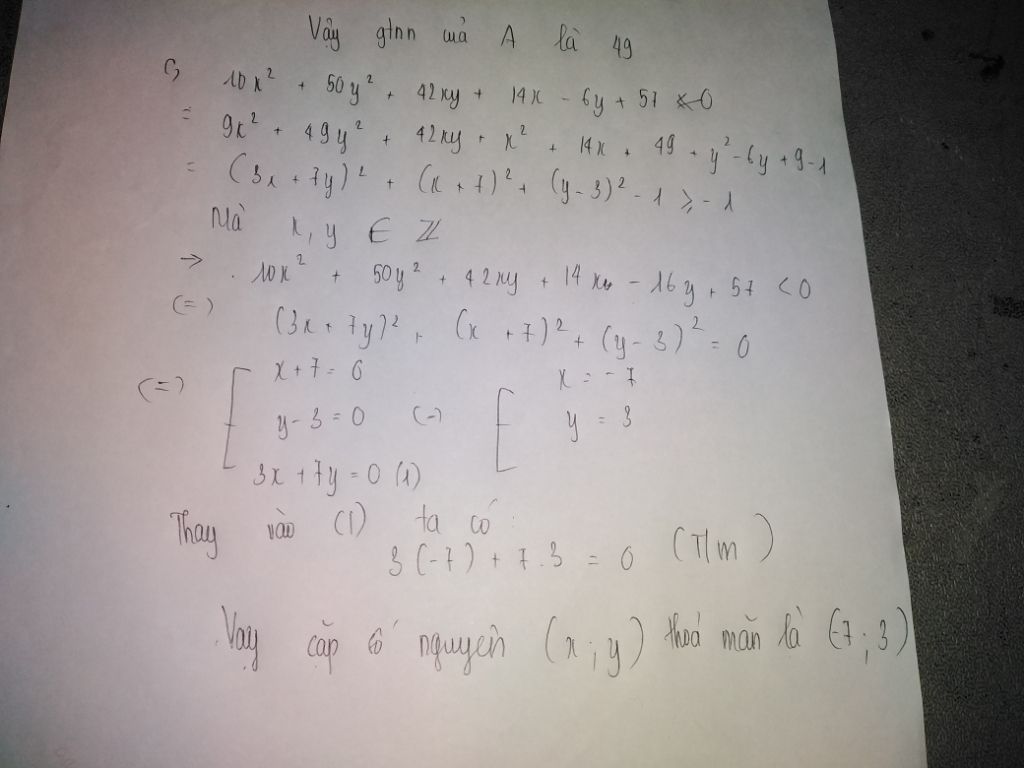 Vậy gtnn của A là 49
c, 10x² + 50y² + 42xy + 14x - 6y + 57 < 0
= 9x² + 49y² + 42xy + x² + 14x + 49 + y² - 6y + 9 - 1
= (3x + 7y)² + (x + 7)² + (y - 3)² - 1 ≥ - 1
Mà x, y ∈ ℤ
→ 10x² + 50y² + 42xy + 14x - 16y + 57 < 0
(=) (3x + 7y)² + (x + 7)² + (y - 3)² = 0
(=) [ x + 7 = 0 x = - 7
y - 3 = 0 (=) [ y = 3
3x + 7y = 0 (1)
Thay vào (1) ta có :
3 (-7) + 7 . 3 = 0 (T/m)
Vậy cặp số nguyên (x ; y) thoả mãn là (-7 ; 3)